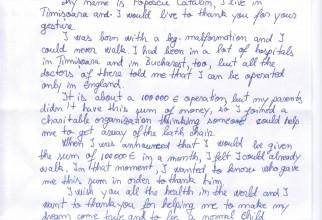 My name is Popescu Catalin, I live in
Timisoara and I would like to thank you for your
gesture.
I was born with a leg malformation and I
could never walk. I had been in a lot of hospitals
in Timisoara and in Bucharest, too, but all the
doctors of there told me that I can be operated
only in England.
It is about a 100000 € operation, but my parents
didn't have this sum of money, so I joined a
charitable organization thinking someone could help
me to get away of the bath chair.
When I was announced that I would be given
the sum of 100000 € in a month, I felt I could already
walk. In that moment, I wanted to know who gave
me this sum in order to thank him.
I wish you all the health in the world and I
want to thank you for helping me to make my
dream come true and to be a normal child.